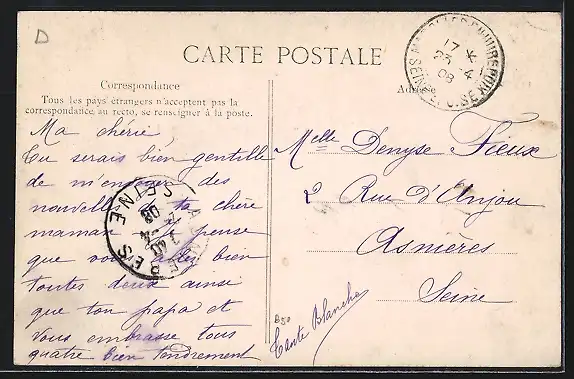 D
CARTE POSTALE
Correspondance
Tous les pays étrangers n'acceptent pas la
correspondance au recto, se renseigner à la poste.
Adresse
17
23 4
08
SEINE ET OISE
Ma chérie,
Tu serais bien gentille
de m'envoyer des
nouvelles de ta chère
maman je pense
que vous allez bien
toutes deux ainsi
que ton papa et
vous embrasse tous
quatre bien tendrement
Tante Blanche
Melle Denyse Fieux
2 Rue d'Anjou
Asnières
Seine
SEINE
08